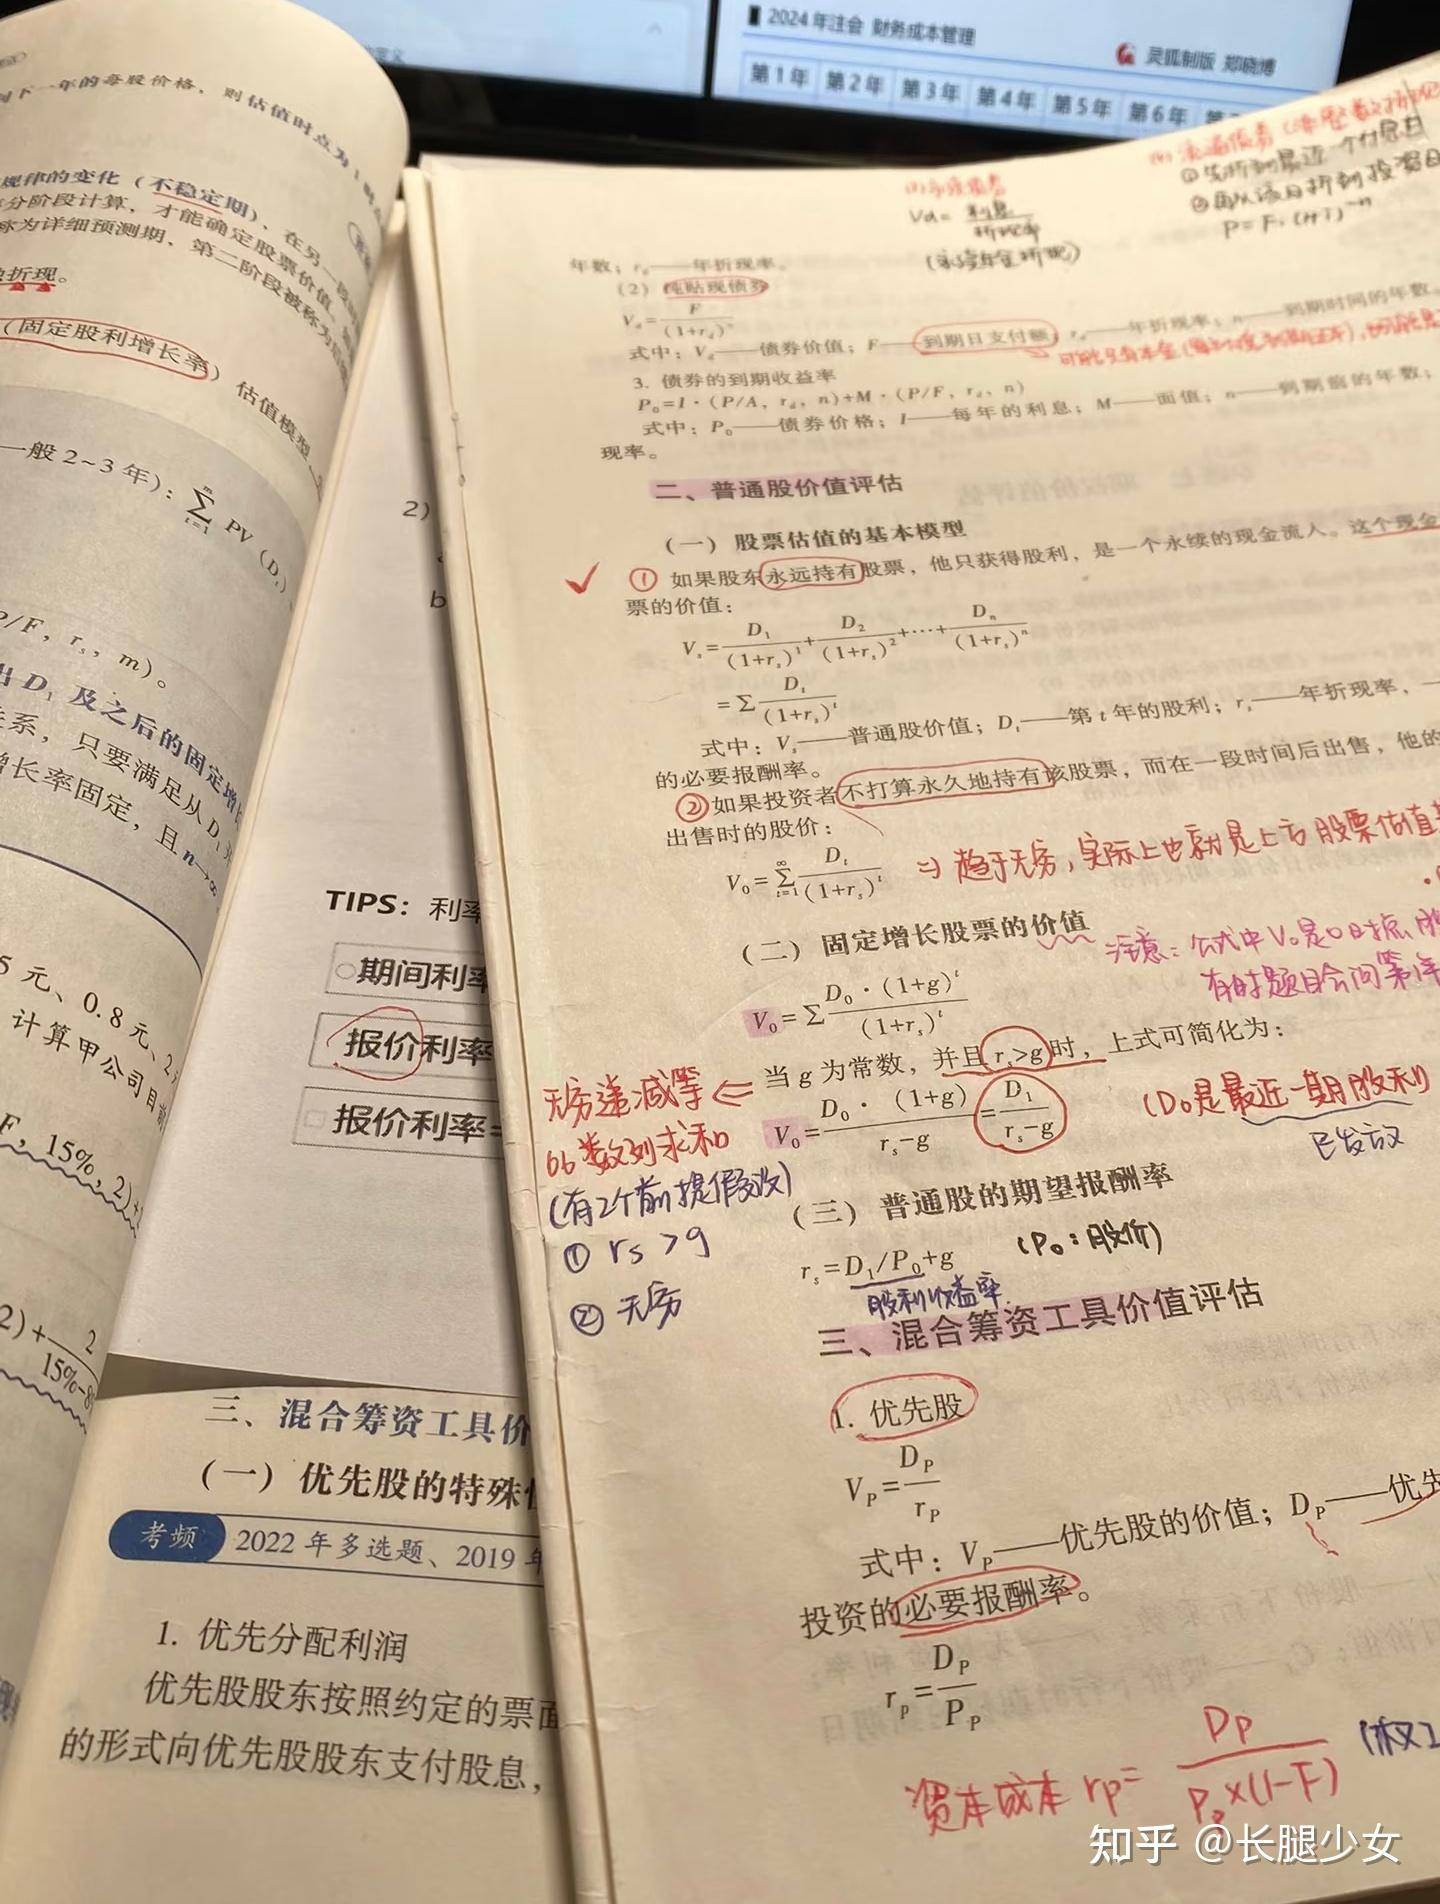 2024年注会 财务成本管理
灵狐制版 郑晓博
第1年 第2年 第3年 第4年 第5年 第6年
下一年的每股价格，则估值时点为
规律的变化（不稳定期），在另一
分阶段计算，才能确定股票价值。
称为详细预测期，第二阶段被称为后
折现。
（固定股利增长率）估值模型
一般2~3年）：∑ᵐₜ₌₁ PV（Dₜ）
P/F，rₛ，m）。
出D₁及之后的固定增长
系，只要满足从D₁
增长率固定，且n→∞
5元、0.8元、
计算甲公司目前
F，15%，2）+
2）+2/(15%-8
2）
b
TIPS：利率
期间利率
报价利率
报价利率=
三、混合筹资工具价
（一）优先股的特殊性
考频 2022年多选题、2019年
1. 优先分配利润
优先股股东按照约定的票面
的形式向优先股股东支付股息，
Vd=利息/折现率
（永续年金折现）
P=F·(1+i)⁻ⁿ
年数；r_d——年折现率。
（2）纯贴现债券
V_d=F/(1+r_d)ⁿ
式中：V_d——债券价值；F——到期日支付额；r_d——年折现率；n——到期时间的年数。
3. 债券的到期收益率
P₀=I·（P/A，r_d，n）+M·（P/F，r_d，n）
式中：P₀——债券价格；I——每年的利息；M——面值；n——到期前的年数；
现率。
二、普通股价值评估
（一）股票估值的基本模型
①如果股东永远持有股票，他只获得股利，是一个永续的现金流入。这个现金
票的价值：
Vₛ=D₁/(1+rₛ)¹+D₂/(1+rₛ)²+…+Dₙ/(1+rₛ)ⁿ
=∑Dₜ/(1+rₛ)ᵗ
式中：Vₛ——普通股价值；Dₜ——第t年的股利；rₛ——年折现率，一
的必要报酬率。
②如果投资者不打算永久地持有该股票，而在一段时间后出售，他的
出售时的股价：
V₀=∑^∞ₜ₌₁ Dₜ/(1+rₛ)ᵗ
⇒趋于无穷，实际上也就是上方股票估值基
（二）固定增长股票的价值
注意：公式中V₀是0时点
有时题目会问第1年
V₀=∑D₀·(1+g)ᵗ/(1+rₛ)ᵗ
当g为常数，并且rₛ>g时，上式可简化为：
无穷递减等
比数列求和
V₀=D₀·（1+g）/(rₛ-g)=D₁/(rₛ-g)
（D₀是最近一期股利）
已发放
（有2个前提假设）
① rs>g
② 无穷
（三）普通股的期望报酬率
rₛ=D₁/P₀+g
（P₀：股价）
股利收益率
三、混合筹资工具价值评估
1. 优先股
V_P=D_P/r_P
式中：V_P——优先股的价值；D_P——优先
投资的必要报酬率。
r_p=D_P/P_P
资本成本 rp=Dp/(Pp×(1-F)
知乎 @长腿少女